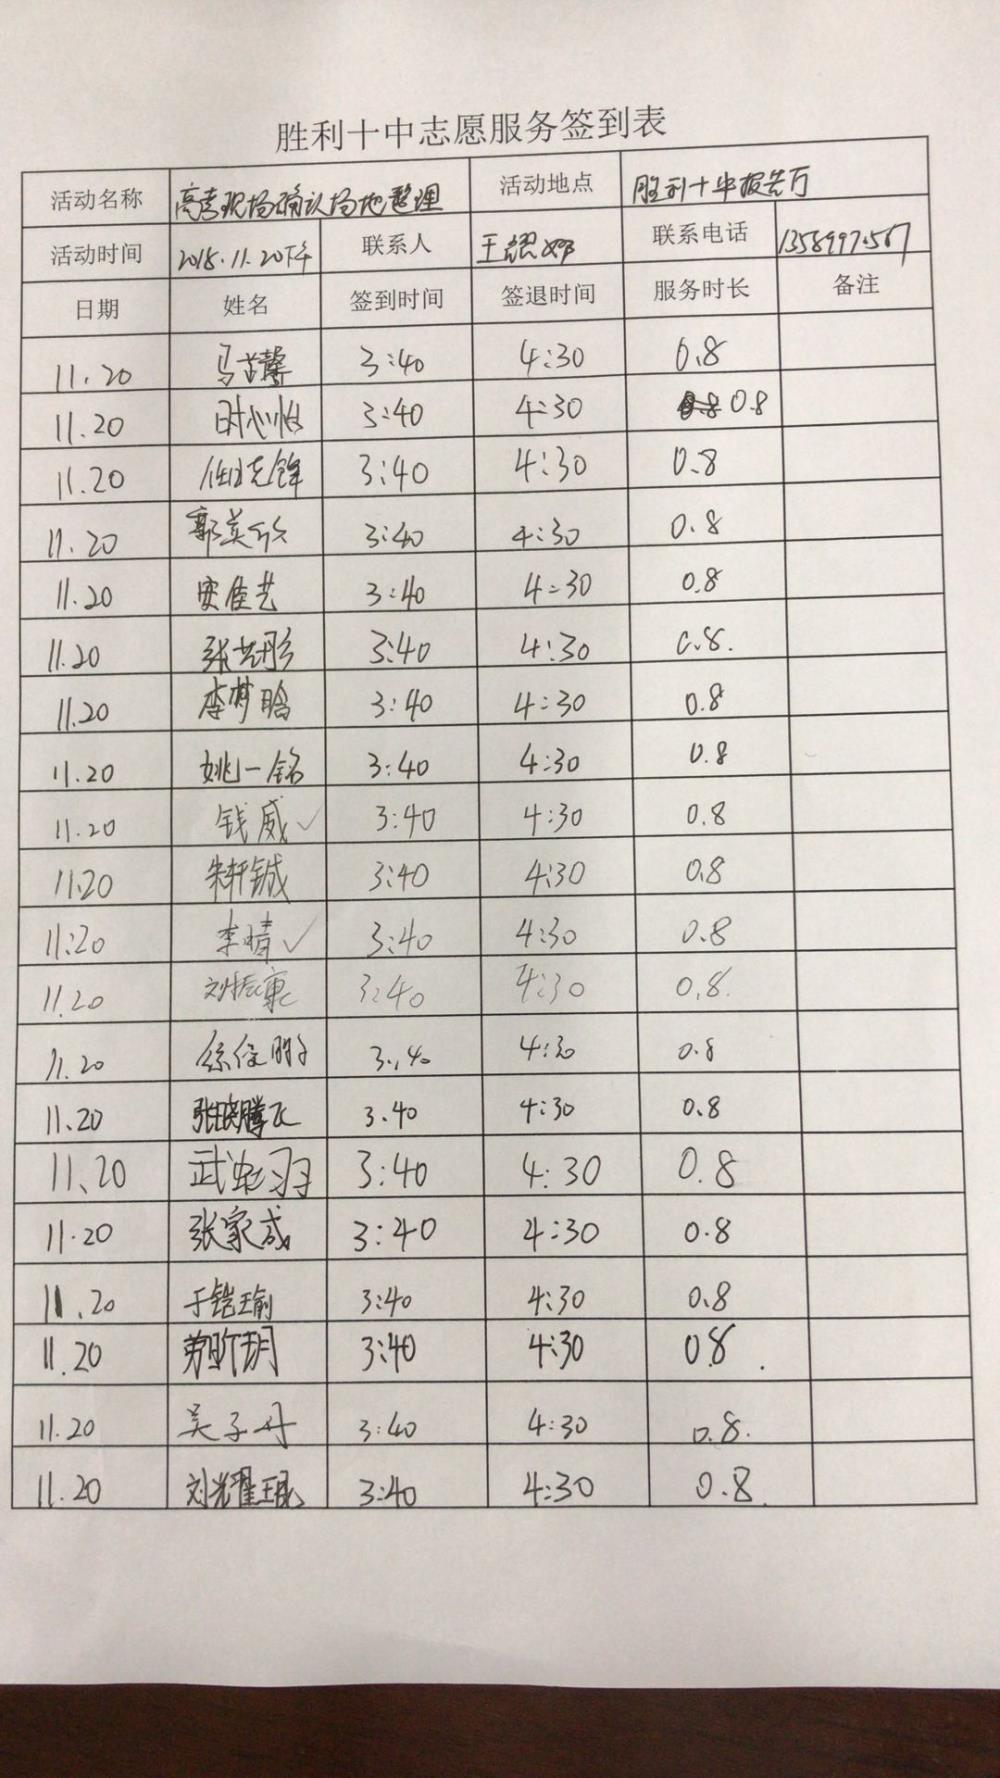 胜利十中志愿服务签到表
活动名称 高考现场确认场地整理 活动地点 胜利十中报告厅
活动时间 2018.11.20下午 联系人 王 联系电话
日期 姓名 签到时间 签退时间 服务时长 备注
11.20 马 馨 3:40 4:30 0.8
11.20 时心怡 3:40 4:30 0.8
11.20 任志锋 3:40 4:30 0.8
11.20 郭英 3:40 4:30 0.8
11.20 安佳艺 3:40 4:30 0.8
11.20 张艺彤 3:40 4:30 0.8.
11.20 李梦晗 3:40 4:30 0.8
11.20 姚一铭 3:40 4:30 0.8
11.20 钱威✓ 3:40 4:30 0.8
11.20 朱轩铖 3:40 4:30 0.8
11:20 李晴✓ 3:40 4:30 0.8
11.20 刘振康 3:40 4:30 0.8.
11.20 3:40 4:30 0.8
11.20 张晓腾飞 3.40 4:30 0.8
11、20 武 3:40 4:30 0.8
11.20 张家成 3:40 4:30 0.8
11.20 于铠瑜 3:40 4:30 0.8
11.20 玥 3:40 4:30 0.8.
11.20 吴子丹 3:40 4:30 0.8.
11.20 刘耀琨 3:40 4:30 0.8.